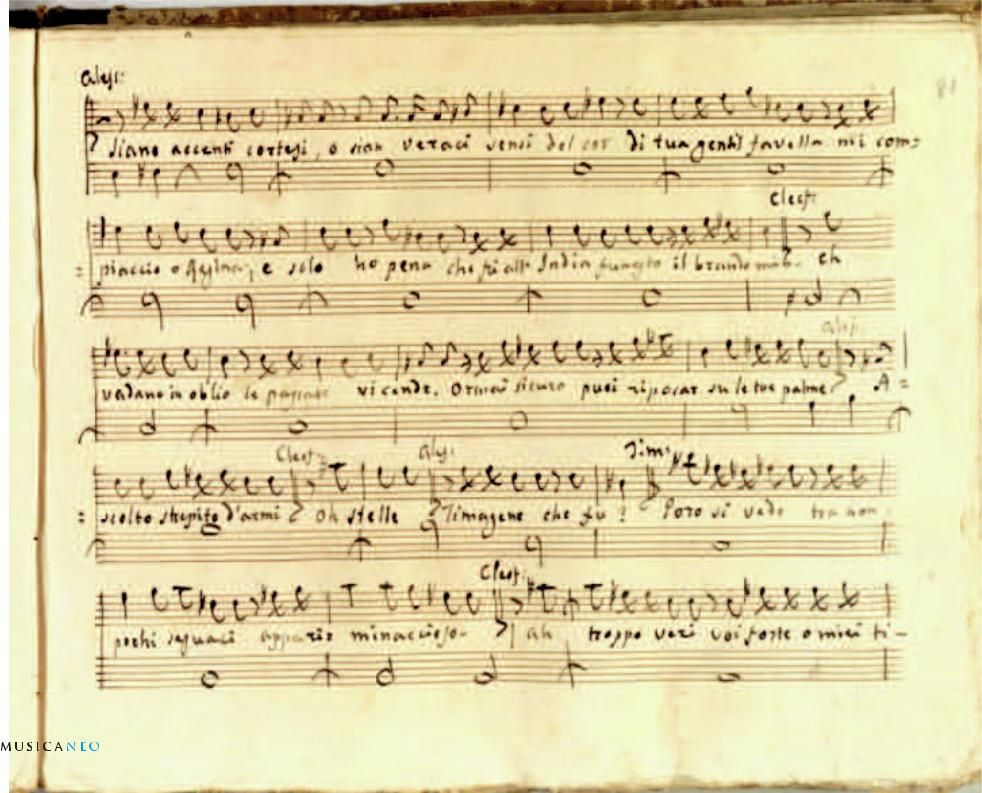 Aless:
81
siano accenti cortesi, o sian veraci sensi del cor di tua gentil favella mi com=
Cleof:
= piaccio o Regina, e solo ho pena che fù all' India funesto il brando mio. eh
Aless.
vadano in oblio le passate vicende. Ormai sicuro puoi riposar su le tue palme A=
Cleof: Aless: Tim:
= scolto strepito d'armi Oh stelle Timagene che fu? Poro si vede tra non
Cleof:
pochi seguaci apparir minaccioso. ah troppo veri voi foste o miei ti-
MUSICANEO